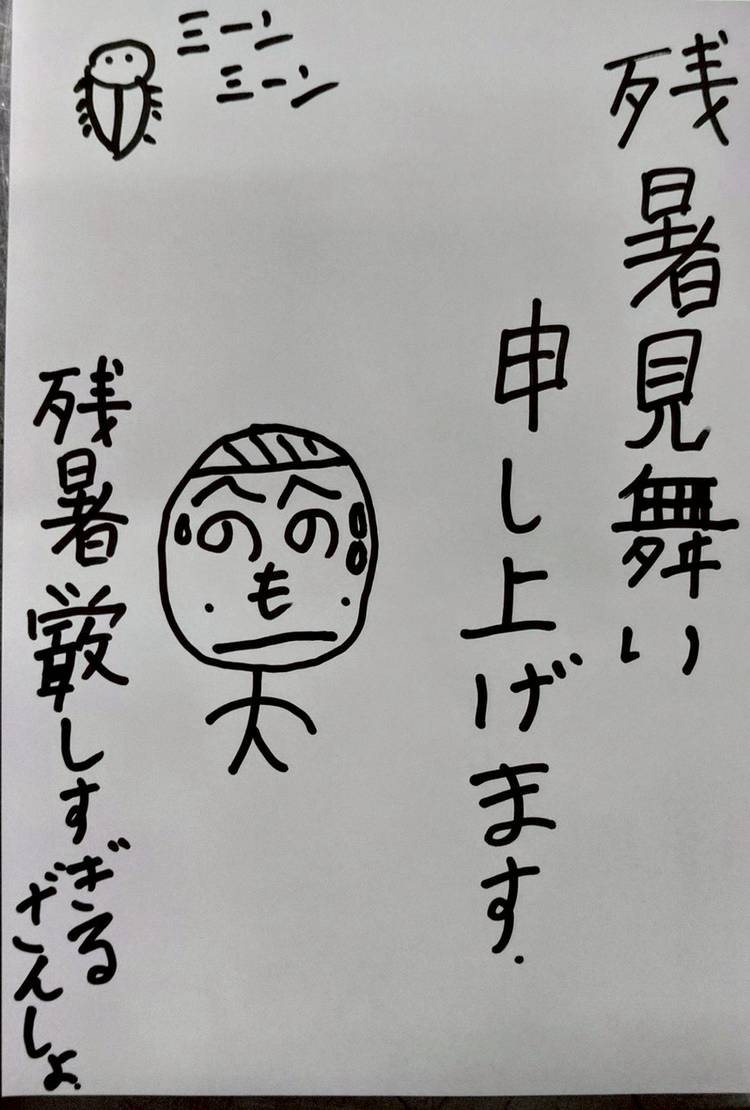 残暑見舞い
申し上げます.
ミーン
ミーン
へへ
のの
も
残暑厳しすぎる
ざんしょ.